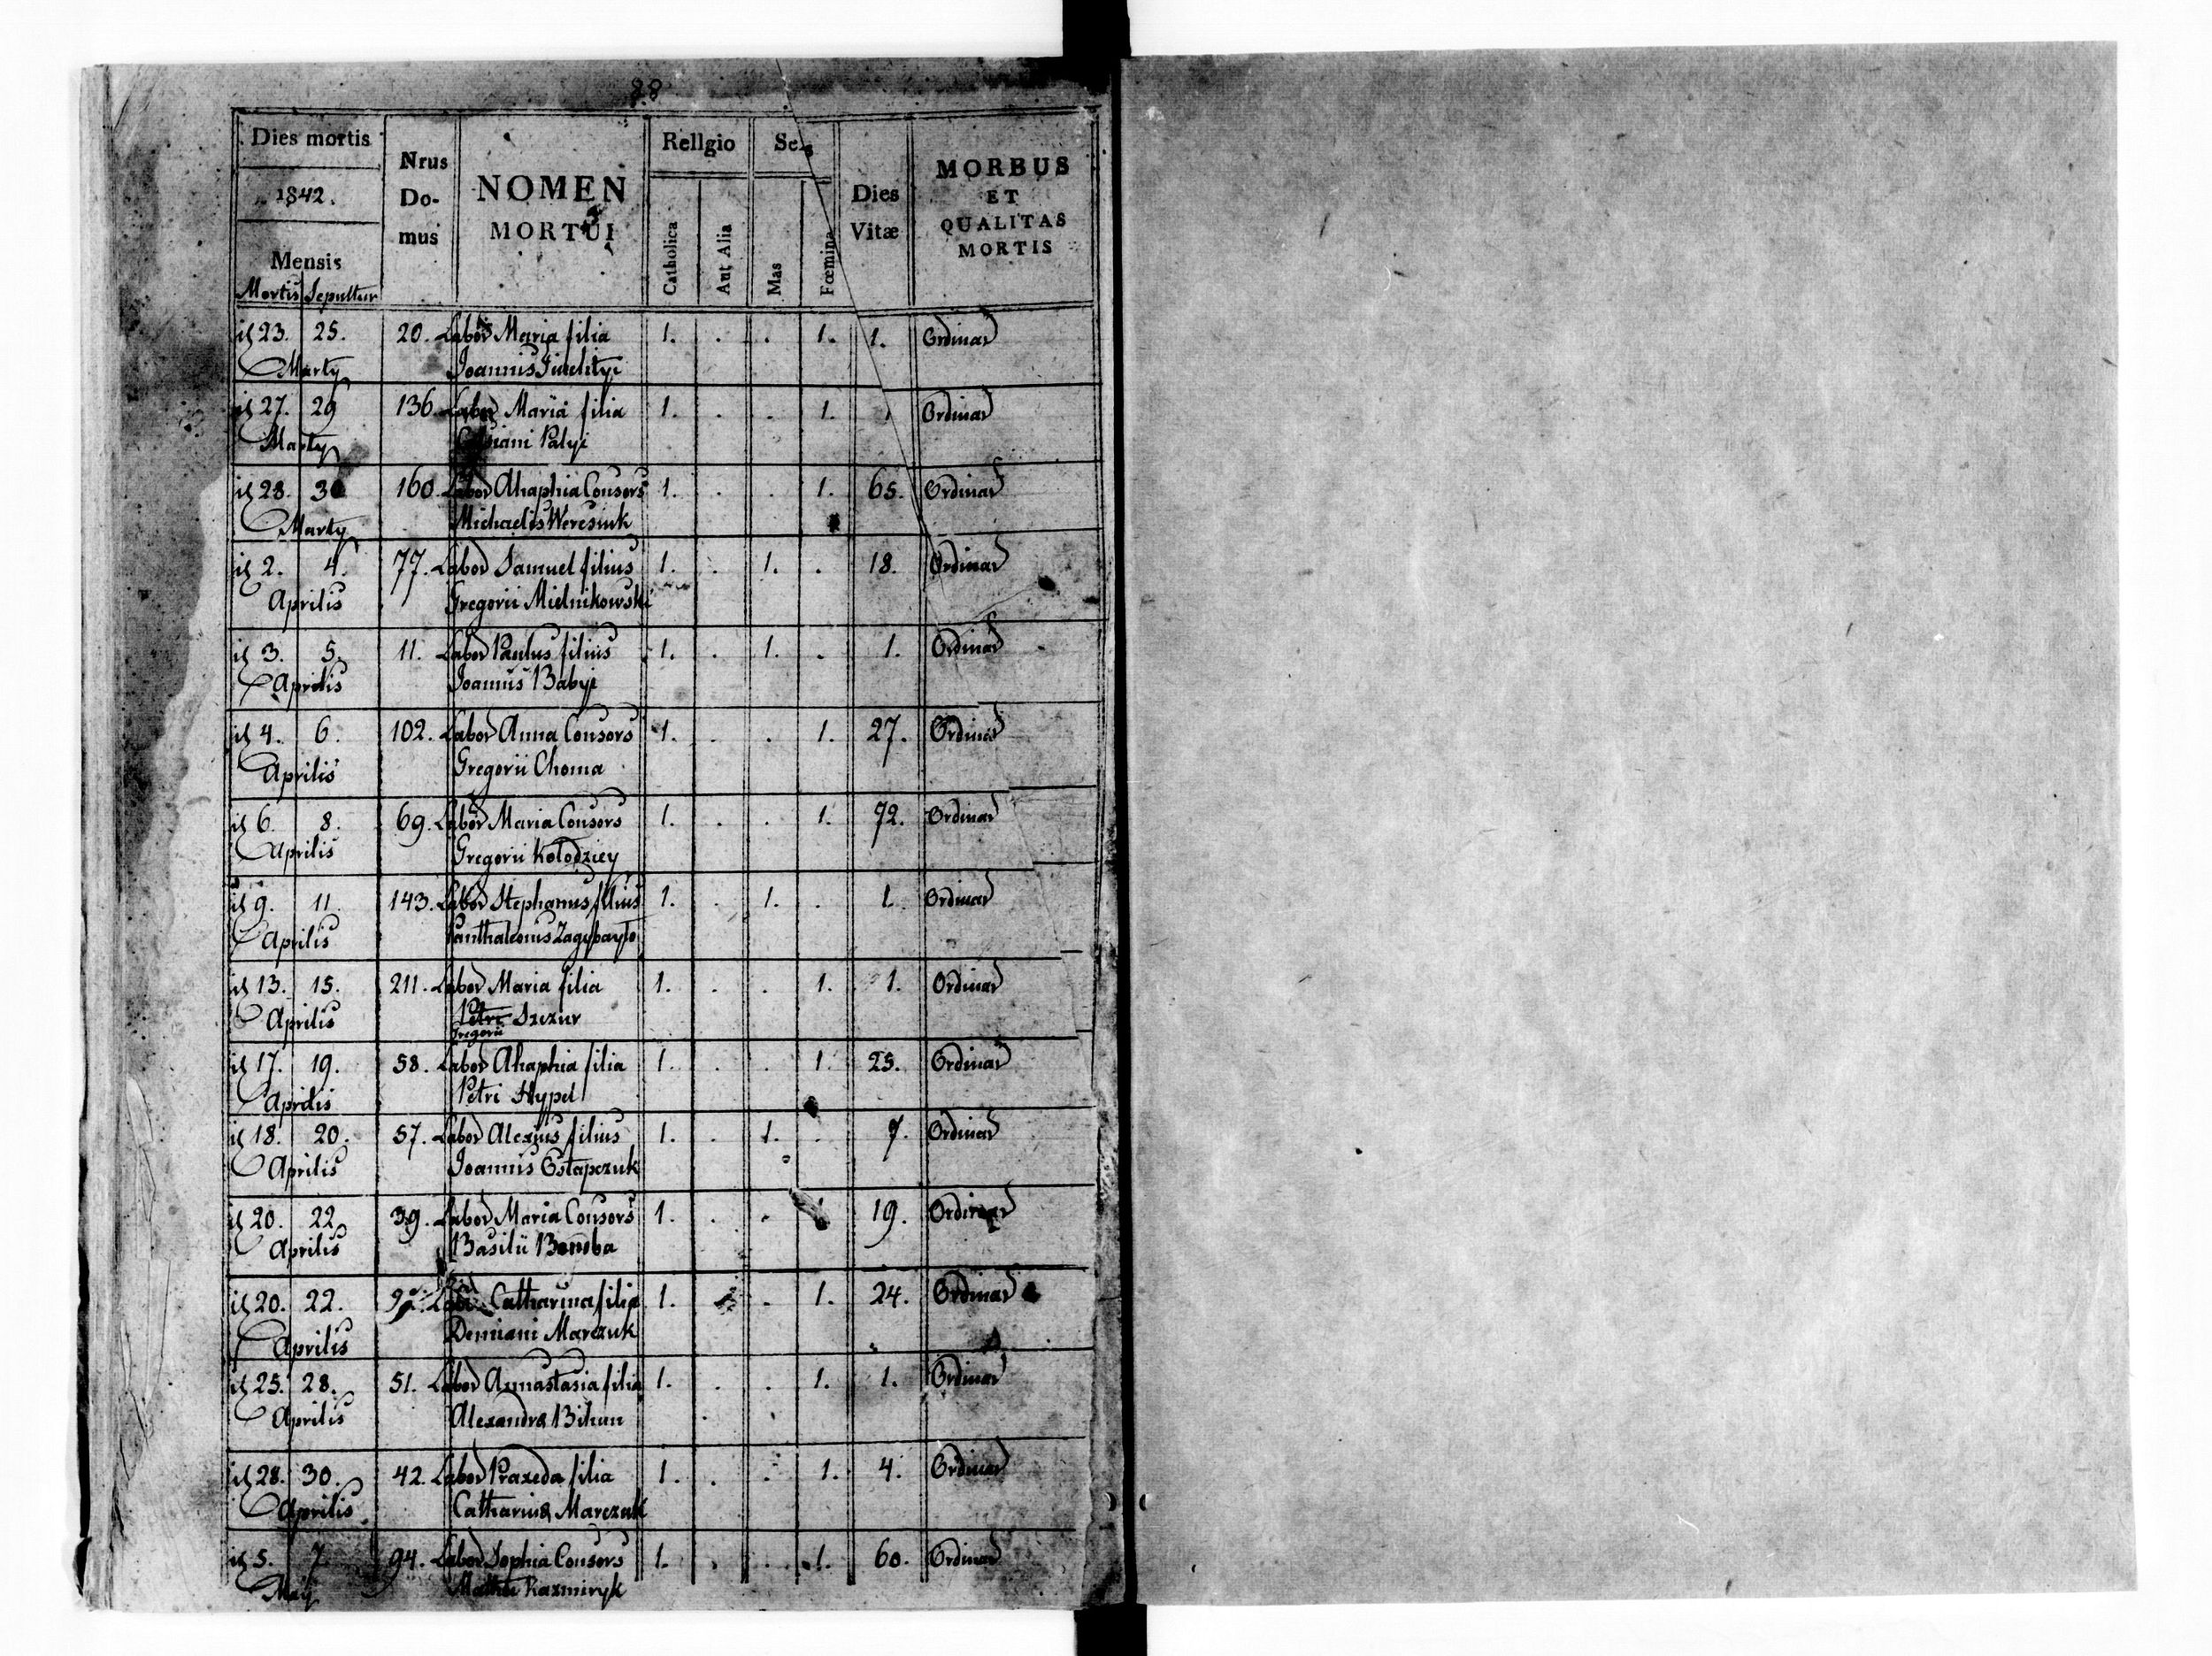 28
Dies mortis
1842.
Mensis
Mortis Sepultur
Nrus
Do-
mus
NOMEN
MORTUI
Rellgio
Catholica
Aut Alia
Sex
Mas
Fœmina
Dies
Vitæ
MORBUS
ET
QUALITAS
MORTIS
id 23. 25. 20. Labor Maria filia 1. . . 1. 1. Ordinar
Marty Joannis
id 27. 29 136. Labor Maria filia 1. . . 1. Ordinar
Marty Palyi
id 28. 30 160. Labor Ahaphia Consors 1. . . 1. 65. Ordinar
Marty Michaelis Weresiuk
id 2. 4. 77. Labor Samuel filius 1. . 1. . 18. Ordinar
Aprilis Gregorii Mielnikowski
id 3. 5. 11. Labor Paulus filius 1. . 1. . 1. Ordinar
Aprilis Joannis Babyi
id 4. 6. 102. Labor Anna Consors 1. . . 1. 27. Ordinar
Aprilis Gregorii Choma
id 6. 8. 69. Labor Maria Consors 1. . . 1. 72. Ordinar
Aprilis Gregorii Kołodziey
id 9. 11. 143. Labor Stephanus filius 1. . 1. . 1. Ordinar
Aprilis Panthaleonis
id 13. 15. 211. Labor Maria filia 1. . . 1. 1. Ordinar
Aprilis Petri Szczur
Gregorii
id 17. 19. 58. Labor Ahaphia filia 1. . . 1. 25. Ordinar
Aprilis Petri Hypel
id 18. 20. 57. Labor Alexius filius 1. . 1. . 7. Ordinar
Aprilis Joannis Ostapczuk
id 20. 22. 39. Labor Maria Consors 1. . . 1. 19. Ordinar
Aprilis Basilii Bomba
id 20. 22. Labor Catharina filia 1. . 1. 24. Ordinar
Aprilis Demiani Marczuk
id 25. 28. 51. Labor Annastasia filia 1. . . 1. 1. Ordinar
Aprilis Alexandra Bihun
id 28. 30. 42. Labor Praxeda filia 1. . . 1. 4. Ordinar
Aprilis Catharina Marczuk
id 5. 7. 94. Labor Sophia Consors 1. . . 1. 60. Ordinar
May Kazmiryk